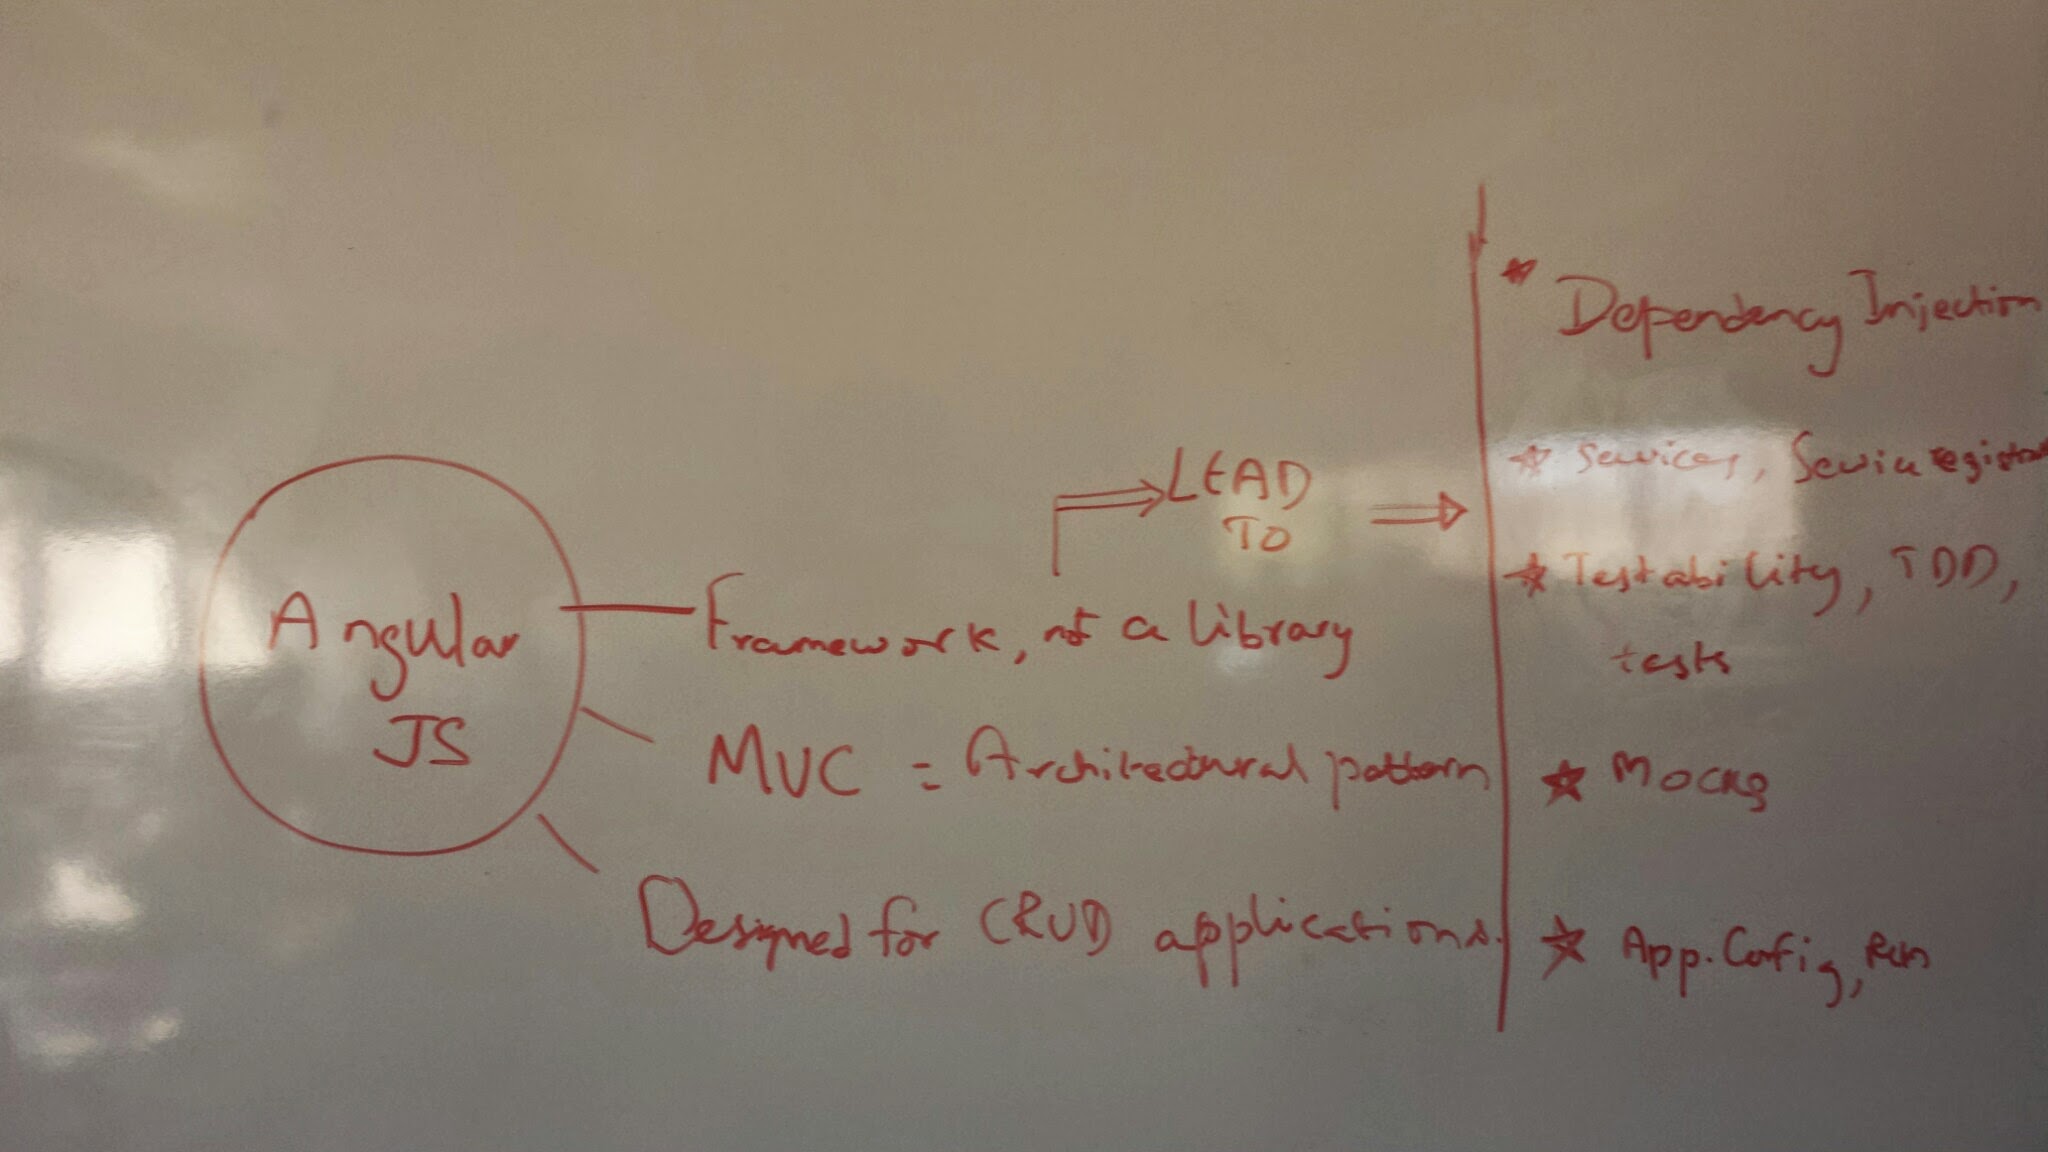 Angular
JS
Framework, not a library
MVC = Architectural pattern
Designed for CRUD applications.
LEAD
TO
Dependency Injection
Services, Service
Testability, TDD,
tests
Mocks
App.Config, Run